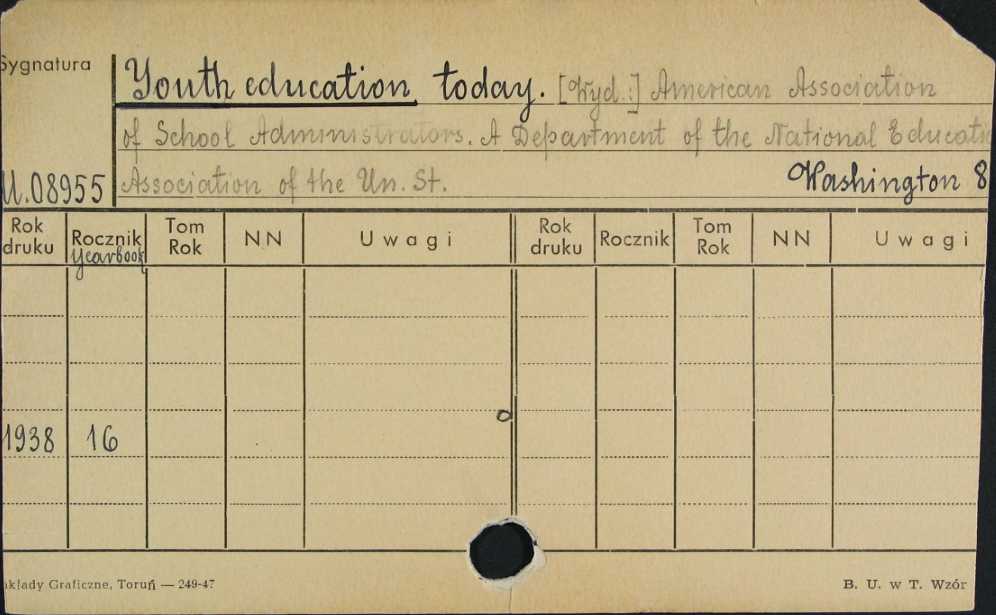 Sygnatura
Youth education today. [Wyd.:] American Association
of School Administrators. A Department of the National Educati
U.08955 Association of the Un. St. Washington 8
Rok druku Rocznik Yearbook Tom Rok NN Uwagi Rok druku Rocznik Tom Rok NN Uwagi
1938 16
akłady Graficzne, Toruń — 249-47 B. U. w T. Wzór